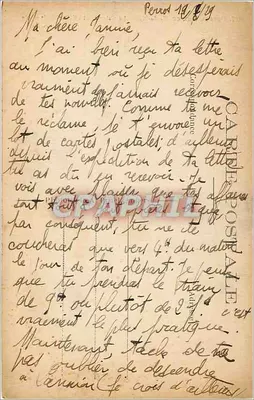 Perros 19 8/19
Ma chère Jannie,
J'ai bien reçu ta lettre
au moment où je désespérais
vraiment de jamais recevoir
de tes nouvelles. Comme tu me
le réclame je t'envoie un
lot de cartes postales d'ailleurs
depuis l'expédition de ta lettre
tu as dû en recevoir. Je
vois avec plaisir que tes affaires
sont
par conséquent, tu ne
coucheras que vers 4h du matin
le jour de ton départ. Je pense
que tu prendras le train
de 9h ou plutôt de 2h c'est
vraiment le plus pratique.
Maintenant, tâche de ne
pas oublier de descendre
à Lannion (je crois d'ailleurs
CARTE POSTALE
Correspondance
Adresse
CPAPHIL